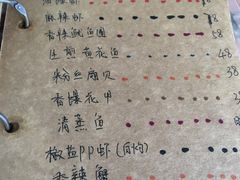 麻辣虾 58
香辣鱿鱼圈 58
生煎黄花鱼 48
粉丝扇贝 38
香爆花甲
清蒸鱼
椒盐PP虾(白灼)
香辣蟹